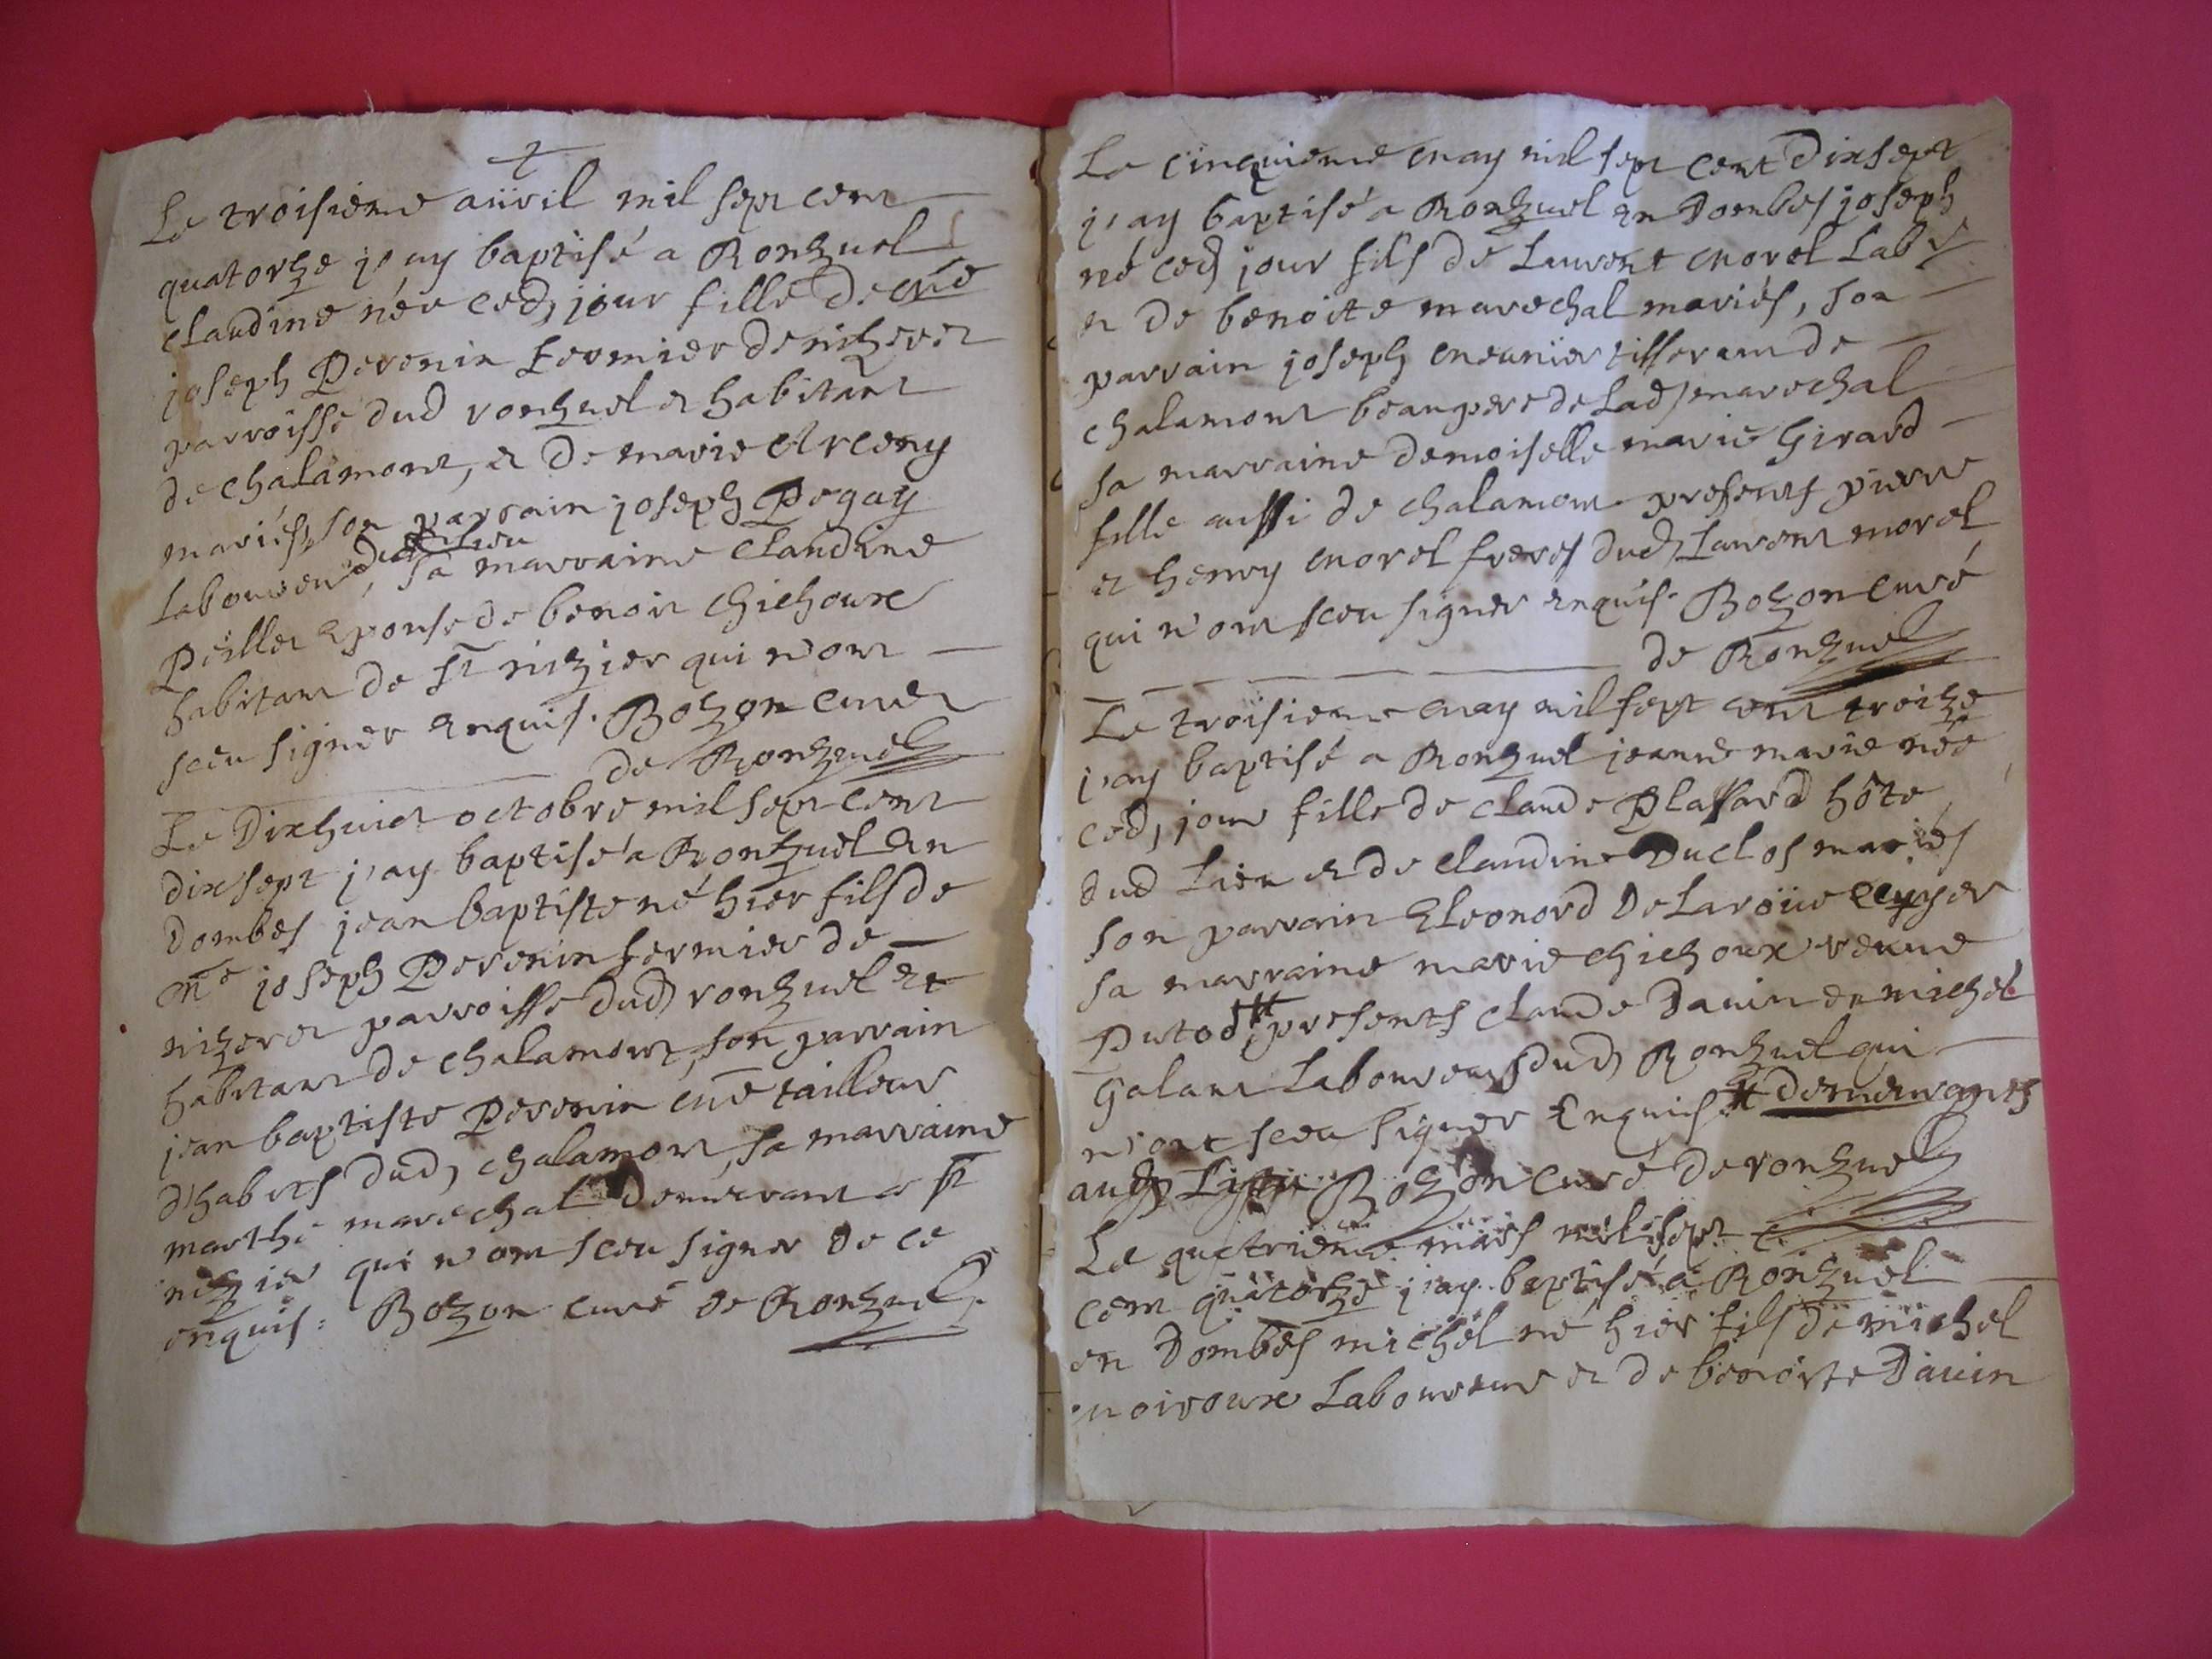 Le troisieme auvril mil sept cent
quatorze j'ay baptisé a Ronzuel
claudine née ced, jour fille de me
joseph Peronin fermier de nizeret
parroisse dud ronzuel et habitant
de chalamont, et de marie Arceny
mariés, son parrain joseph Pegay
dud lieu
laboureur, sa marraine claudine
Peillet epouse de benoit chichoux
habitant de st nizier qui n'ont
sceu signer enquis. Bozon curé
de Ronzuel
Le Dixhuict octobre mil sept cent
dixsept j'ay baptisé a Ronzuel en
Dombes jean baptiste né hier fils de
me joseph Peronin fermier de
nizeret parroisse dud ronzuel et
habitant de chalamont, son parrain
jean baptiste Peronin me tailleur
d'habits dud, chalamont, sa marraine
marthe marechal demeurant a st
nizier qui n'ont sceu signer de ce
enquis: Bozon curé de Ronzuel.
Le cinquieme may mil sept cent dixsept
j'ay baptisé a Ronzuel en Dombes joseph
né ced, jour fils de Laurent morel Labr
et de benoite marechal mariés, son
parrain joseph meunier tisseran de
chalamont beaupere de lad, marechal
sa marraine demoiselle marie Girard
fille aussi de chalamont presents pierre
et henry morel freres dud, Laurent morel
qui n'ont sceu signer enquis. Bozon curé
de Ronzuel
Le troisieme may mil sept cent treize
j'ay baptisé a Ronzuel jeanne marie née
ced, jour fille de claude Plassard hôte
dud lieu et de claudine Duclos mariés
son parrain Eleonord Delaroüe
sa marraine marie chichoux veuve
Putod # presents claude Dauin et michel
Galant laboureurs dud, Ronzuel qui
n'ont sceu signer Enquis. # demeurants
aud, Bozon curé de ronzuel
Le quatrieme mars mil sept
cent quatorze j'ay baptisé a Ronzuel
en Dombes michel né hier fils de michel
moiroux laboureur et de benoiste Dauin